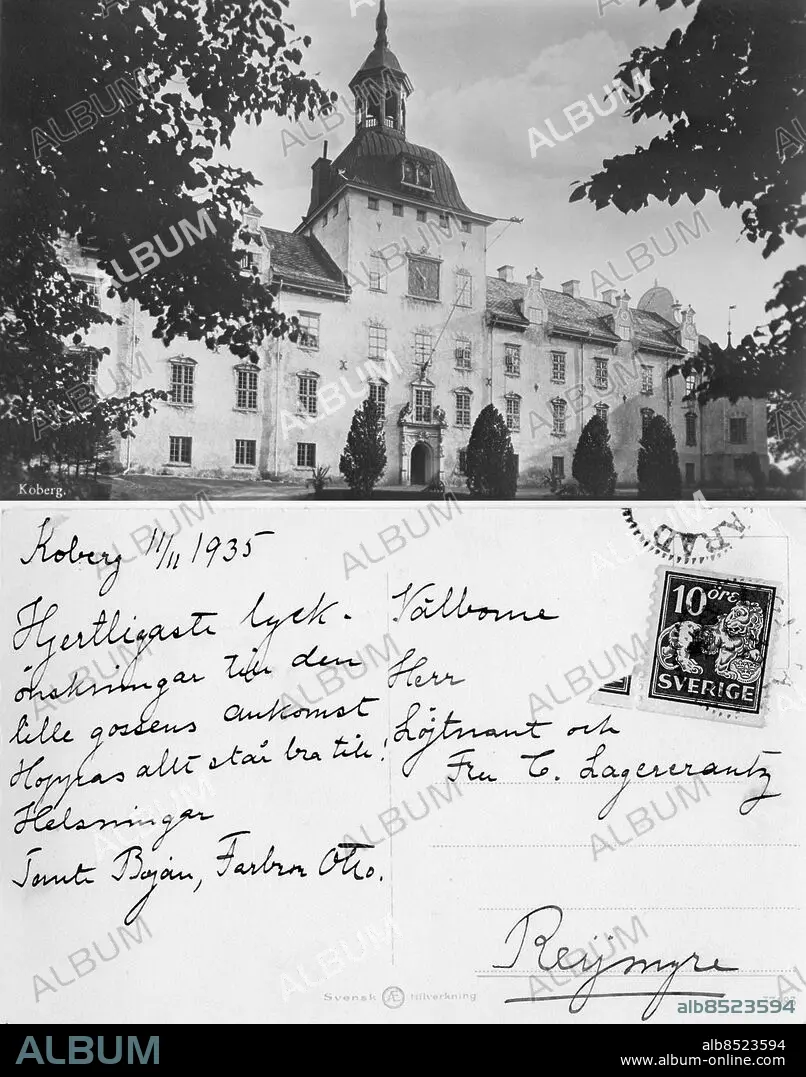 Koberg.
Koberg 11/11 1935
Hjertligaste lyck-
önskningar till den
lille gossens ankomst
Hoppas allt står bra till!
Helsningar
Tante Bojan, Farbror Otto.
Välborne
Herr
Löjtnant och
Fru C. Lagercrantz
Reijmyre
ARAD
10 öre
SVERIGE
Svensk Æ tillverkning
alb8523594
ALBUM
alb8523594
www.album-online.com